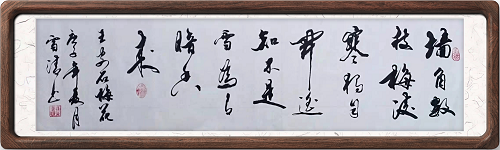 墙角数
枝梅凌
寒独自
开遥
知不是
雪为有
暗香
来
王安石梅花
庚子年夏月
雪涛书